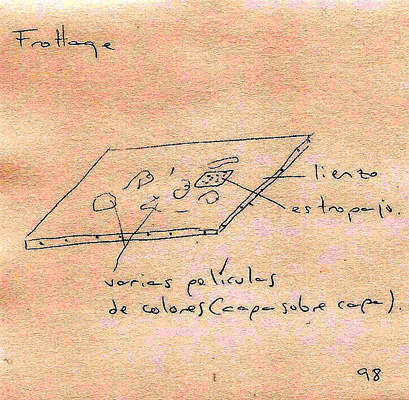 Frottage
lienzo
estropajo.
varias películas
de colores (capa sobre capa).
98